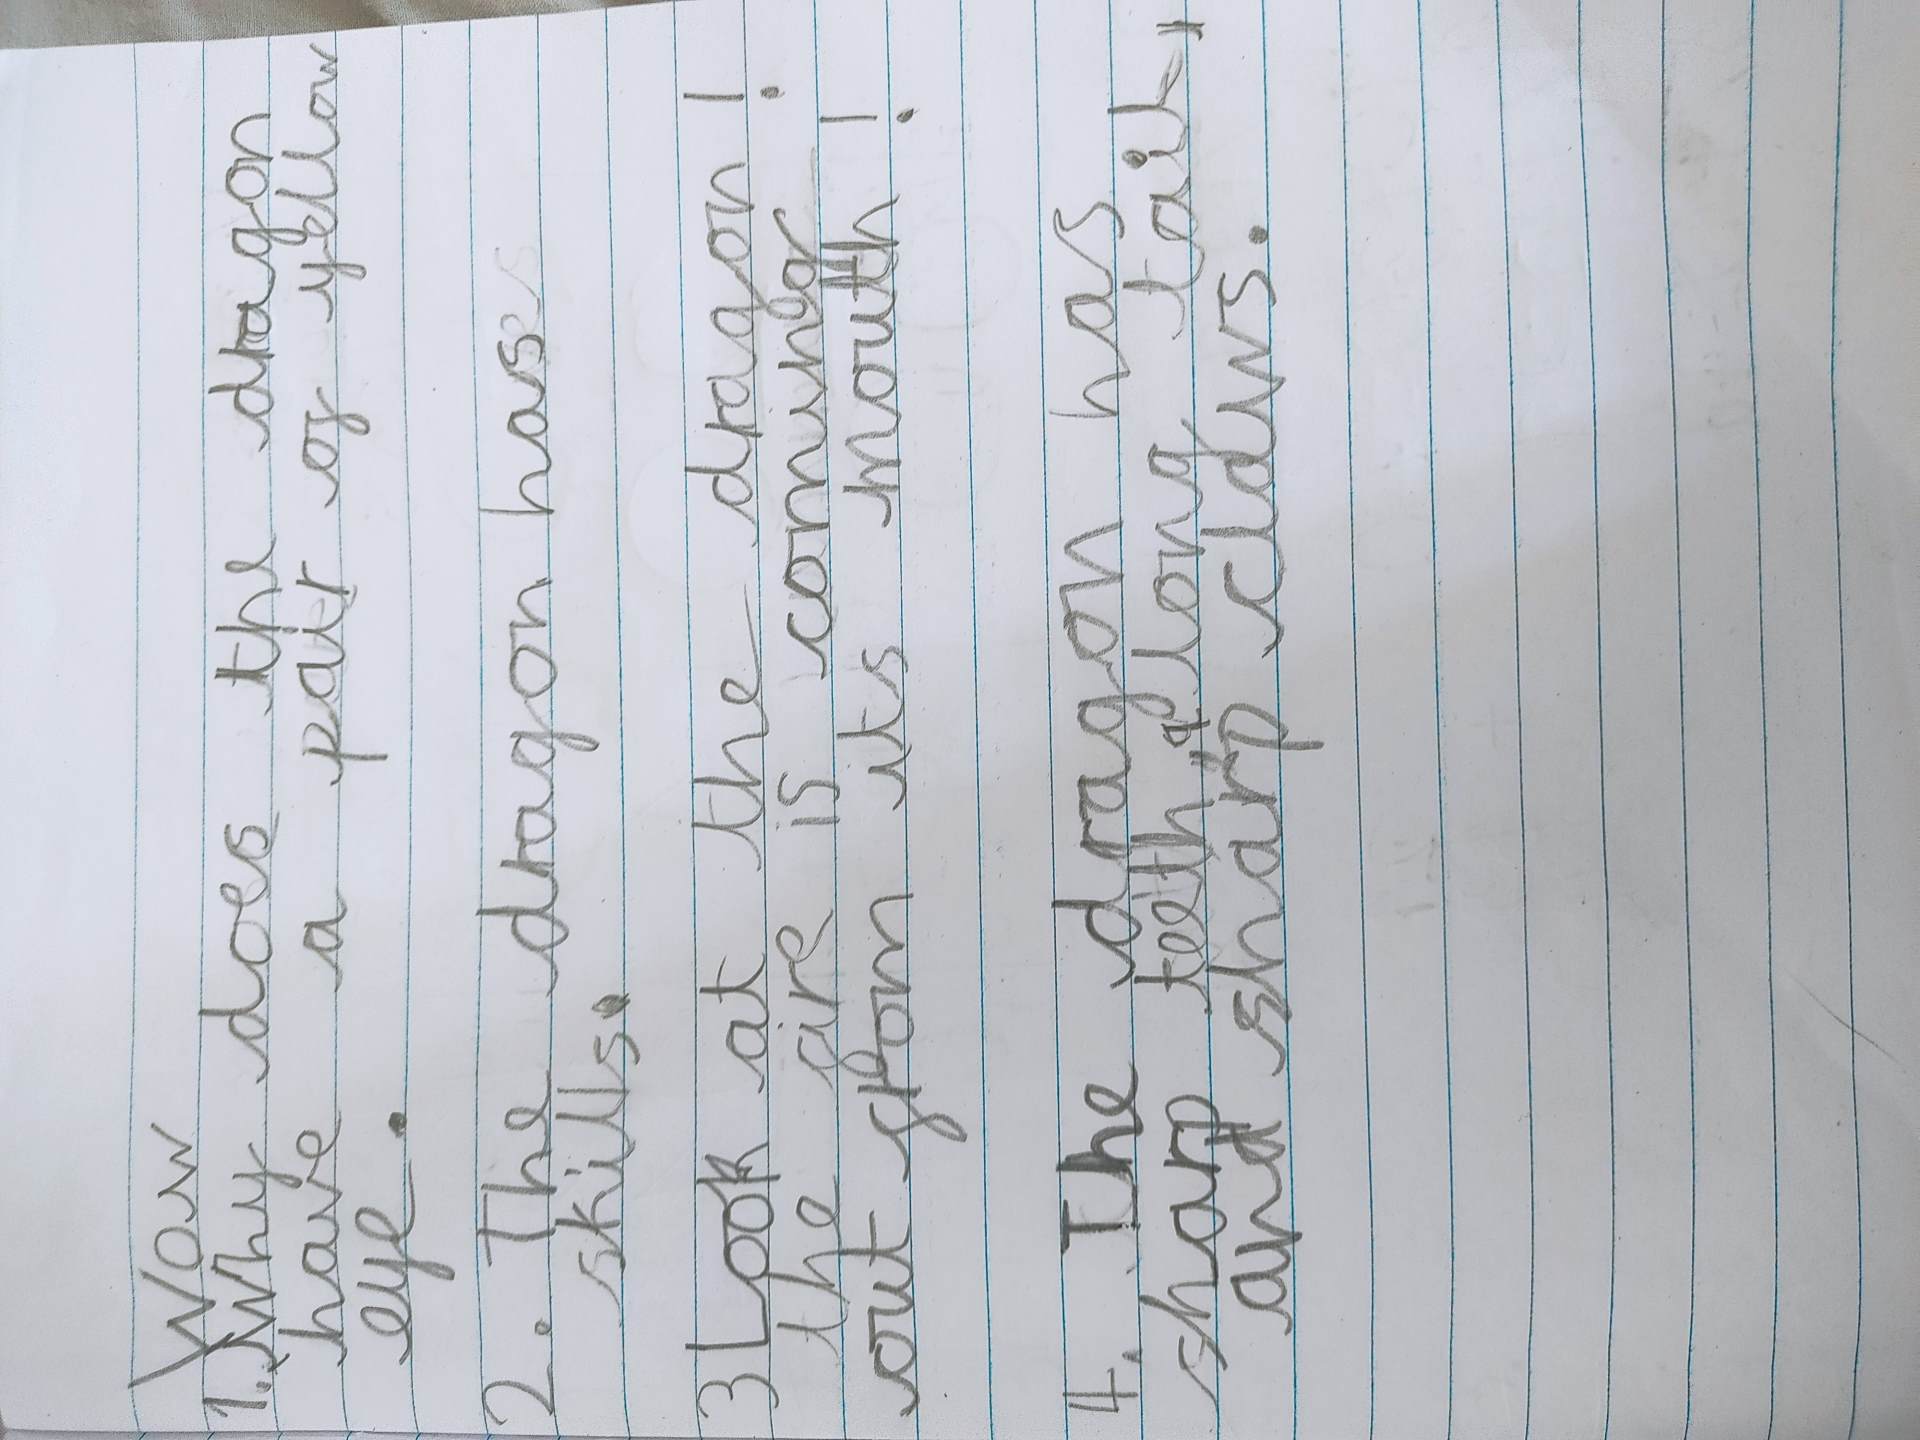 Wow
1. Why does the dragon
have a pair of yellow
eye.
2. The dragon hase
skills.
3 Look at the dragon!
the fire is coming
out from its mouth!
4. The dragon has
sharp teeth, a long tail,
and sharp claws.